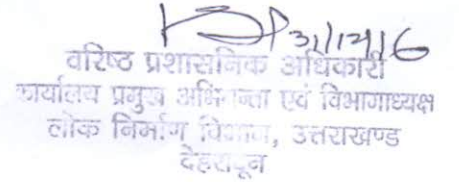 31/12/16
वरिष्ठ प्रशासनिक अधिकारी
कार्यालय प्रमुख अभियन्ता एवं विभागाध्यक्ष
लोक निर्माण विभाग, उत्तराखण्ड
देहरादून